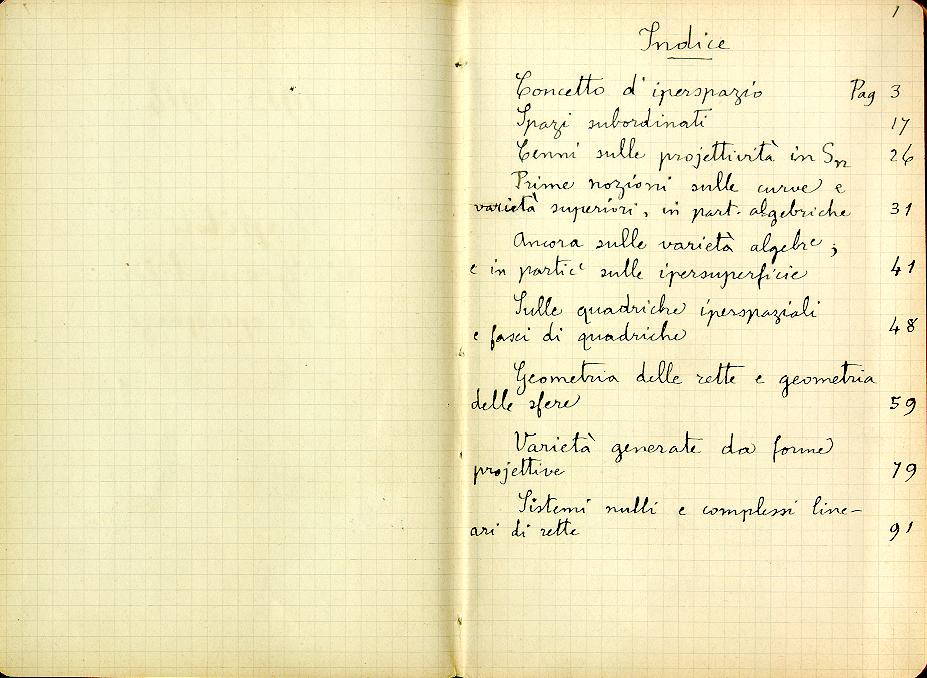 1
Indice
Concetto d'iperspazio Pag 3
Spazi subordinati 17
Cenni sulle projettività in Sn 26
Prime nozioni sulle curve e
varietà superiori, in part. algebriche 31
Ancora sulle varietà algebre;
e in partic sulle ipersuperficie 41
Sulle quadriche iperspaziali
e fasci di quadriche 48
Geometria delle rette e geometria
delle sfere 59
Varietà generate da forme
projettive 79
Sistemi nulli e complessi line-
ari di rette 91